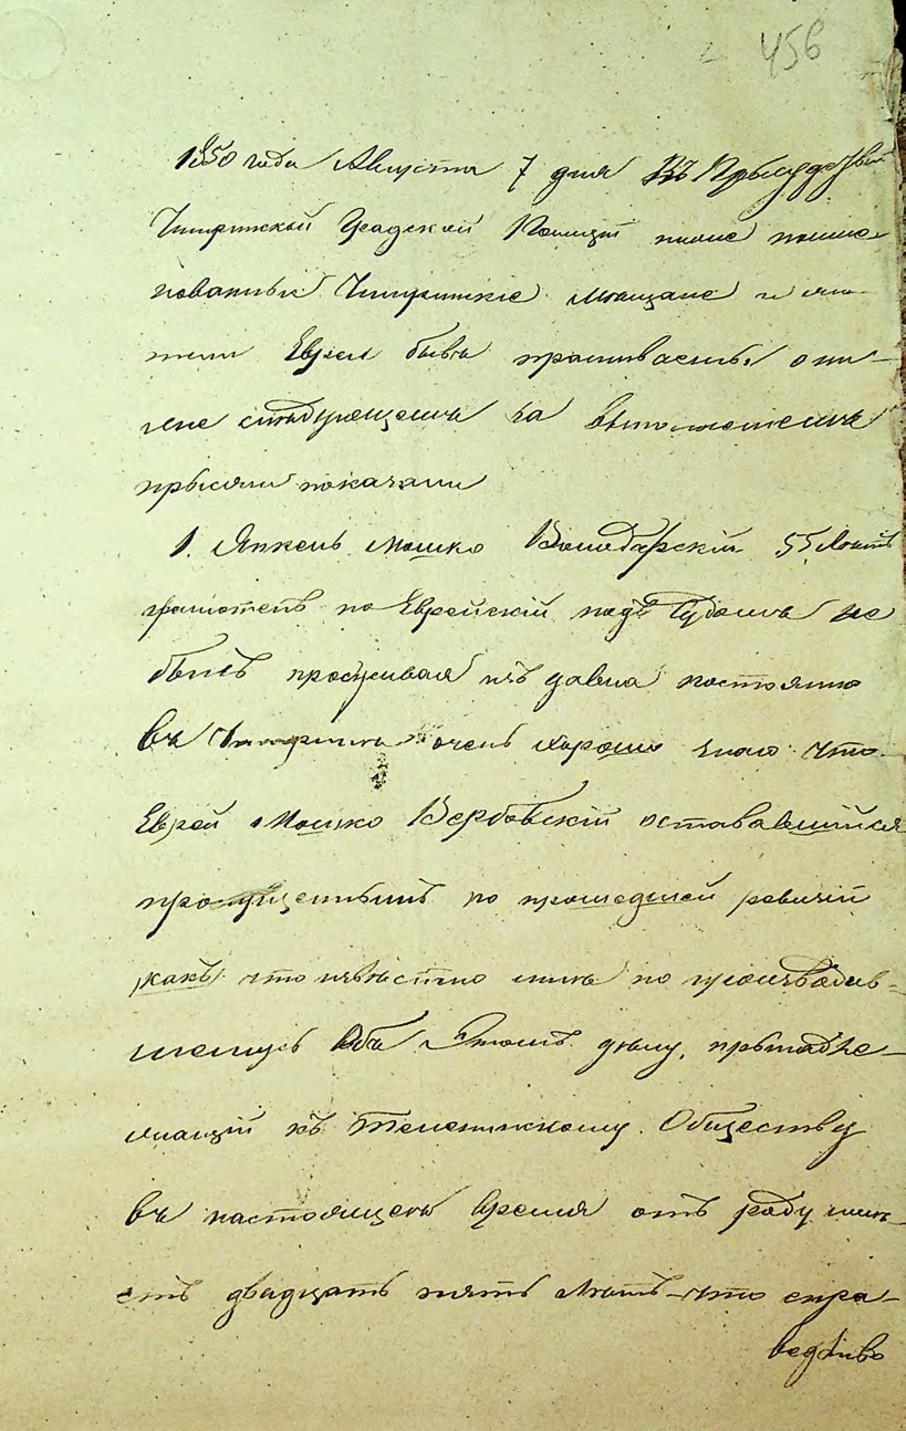 456
1850 года Августа 7 дня Въ Прысудствии
Чигринской Градской Полиции ниже помиио-
нованныи Чигринские мещане и жи-
тели Евреи бывъ спрашиваемы о ни-
же следующемъ за
прысяги показали
1. Янкель Мошко Володарскій 55 летъ
грамотенъ по Еврейскій подъ Судомъ не
былъ прожывая изъ давна постоянно
въ Чигрине очень хорошо знаю что
Еврей Мошко Вербовскій остававшийся
пропущеннымъ по прошедшей ревизій
какъ что известно мне по производив-
шемусъ Объ Этомъ делу, прынадле-
жащій къ Телепинскому Обществу
въ настоящемъ время отъ роду име-
етъ двадцать пять летъ что спра-
ведливо